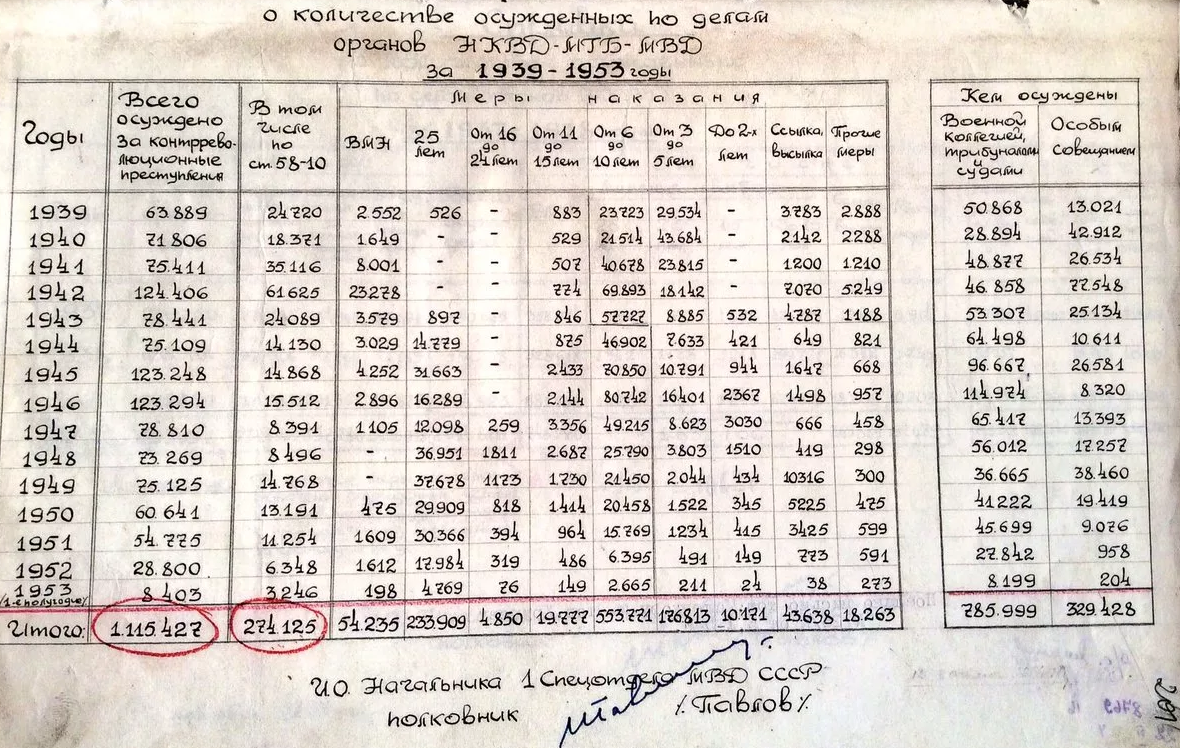 о количестве осужденных по делам
органов НКВД-МГБ-МВД
за 1939-1953 годы
Годы | Всего осуждено за контррево-люционные преступления | В том числе по ст. 58-10 | Меры наказания | Кем осуждены
ВМН | 25 лет | От 16 до 24 лет | От 11 до 15 лет | От 6 до 10 лет | От 3 до 5 лет | До 2-х лет | Ссылка, высылка | Прочие меры | Военной коллегией, трибуналами и судами | Особым совещанием
1939 63.889 24720 2.552 526 - 883 23723 29.534 - 3783 2.888 50.868 13.021
1940 71.806 18.371 1649 - - 529 21514 43.684 - 2142 2288 28.894 42.912
1941 75.411 35.116 8.001 - - 507 40678 23.815 - 1200 1.210 48.877 26.534
1942 124.406 61625 23278 - - 774 69.893 18.142 - 7070 5.249 46.858 77.548
1943 78.441 24089 3.579 897 - 846 57.727 8.885 532 4787 1188 53.307 25.134
1944 75.109 14.130 3.029 14.779 - 875 46902 7.633 421 649 821 64.498 10.611
1945 123.248 14.868 4252 31.663 - 2433 70850 10.791 944 1647 668 96.667 26.581
1946 123.294 15.512 2896 16.289 - 2.144 80742 16401 2367 1498 957 114.974 8.320
1947 78.810 8.391 1105 12.098 259 3.356 49.215 8.623 3030 666 458 65.417 13.393
1948 73.269 8.496 - 36.951 1811 2.687 25.790 3.803 1510 419 298 56.012 17.257
1949 75.125 14.768 - 37678 1173 1.730 21.450 2.044 434 10316 300 36.665 38.460
1950 60.641 13.191 475 29.909 818 1414 20.458 1.522 345 5225 475 41222 19.419
1951 54.775 11.254 1609 30.366 394 964 15.769 1234 415 3425 599 45.699 9.076
1952 28.800 6.348 1612 17.984 319 486 6.395 491 149 773 591 27.842 958
1953 8.403 3.246 198 4.769 76 149 2.665 211 24 38 273 8.199 204
/1-е полугодие/
Итого: 1.115.427 274.125 54.235 233909 4.850 19.777 553.771 176813 10.171 43.638 18.263 785.999 329.428
И.О. Начальника 1 Спецотдела МВД СССР
полковник /Павлов/